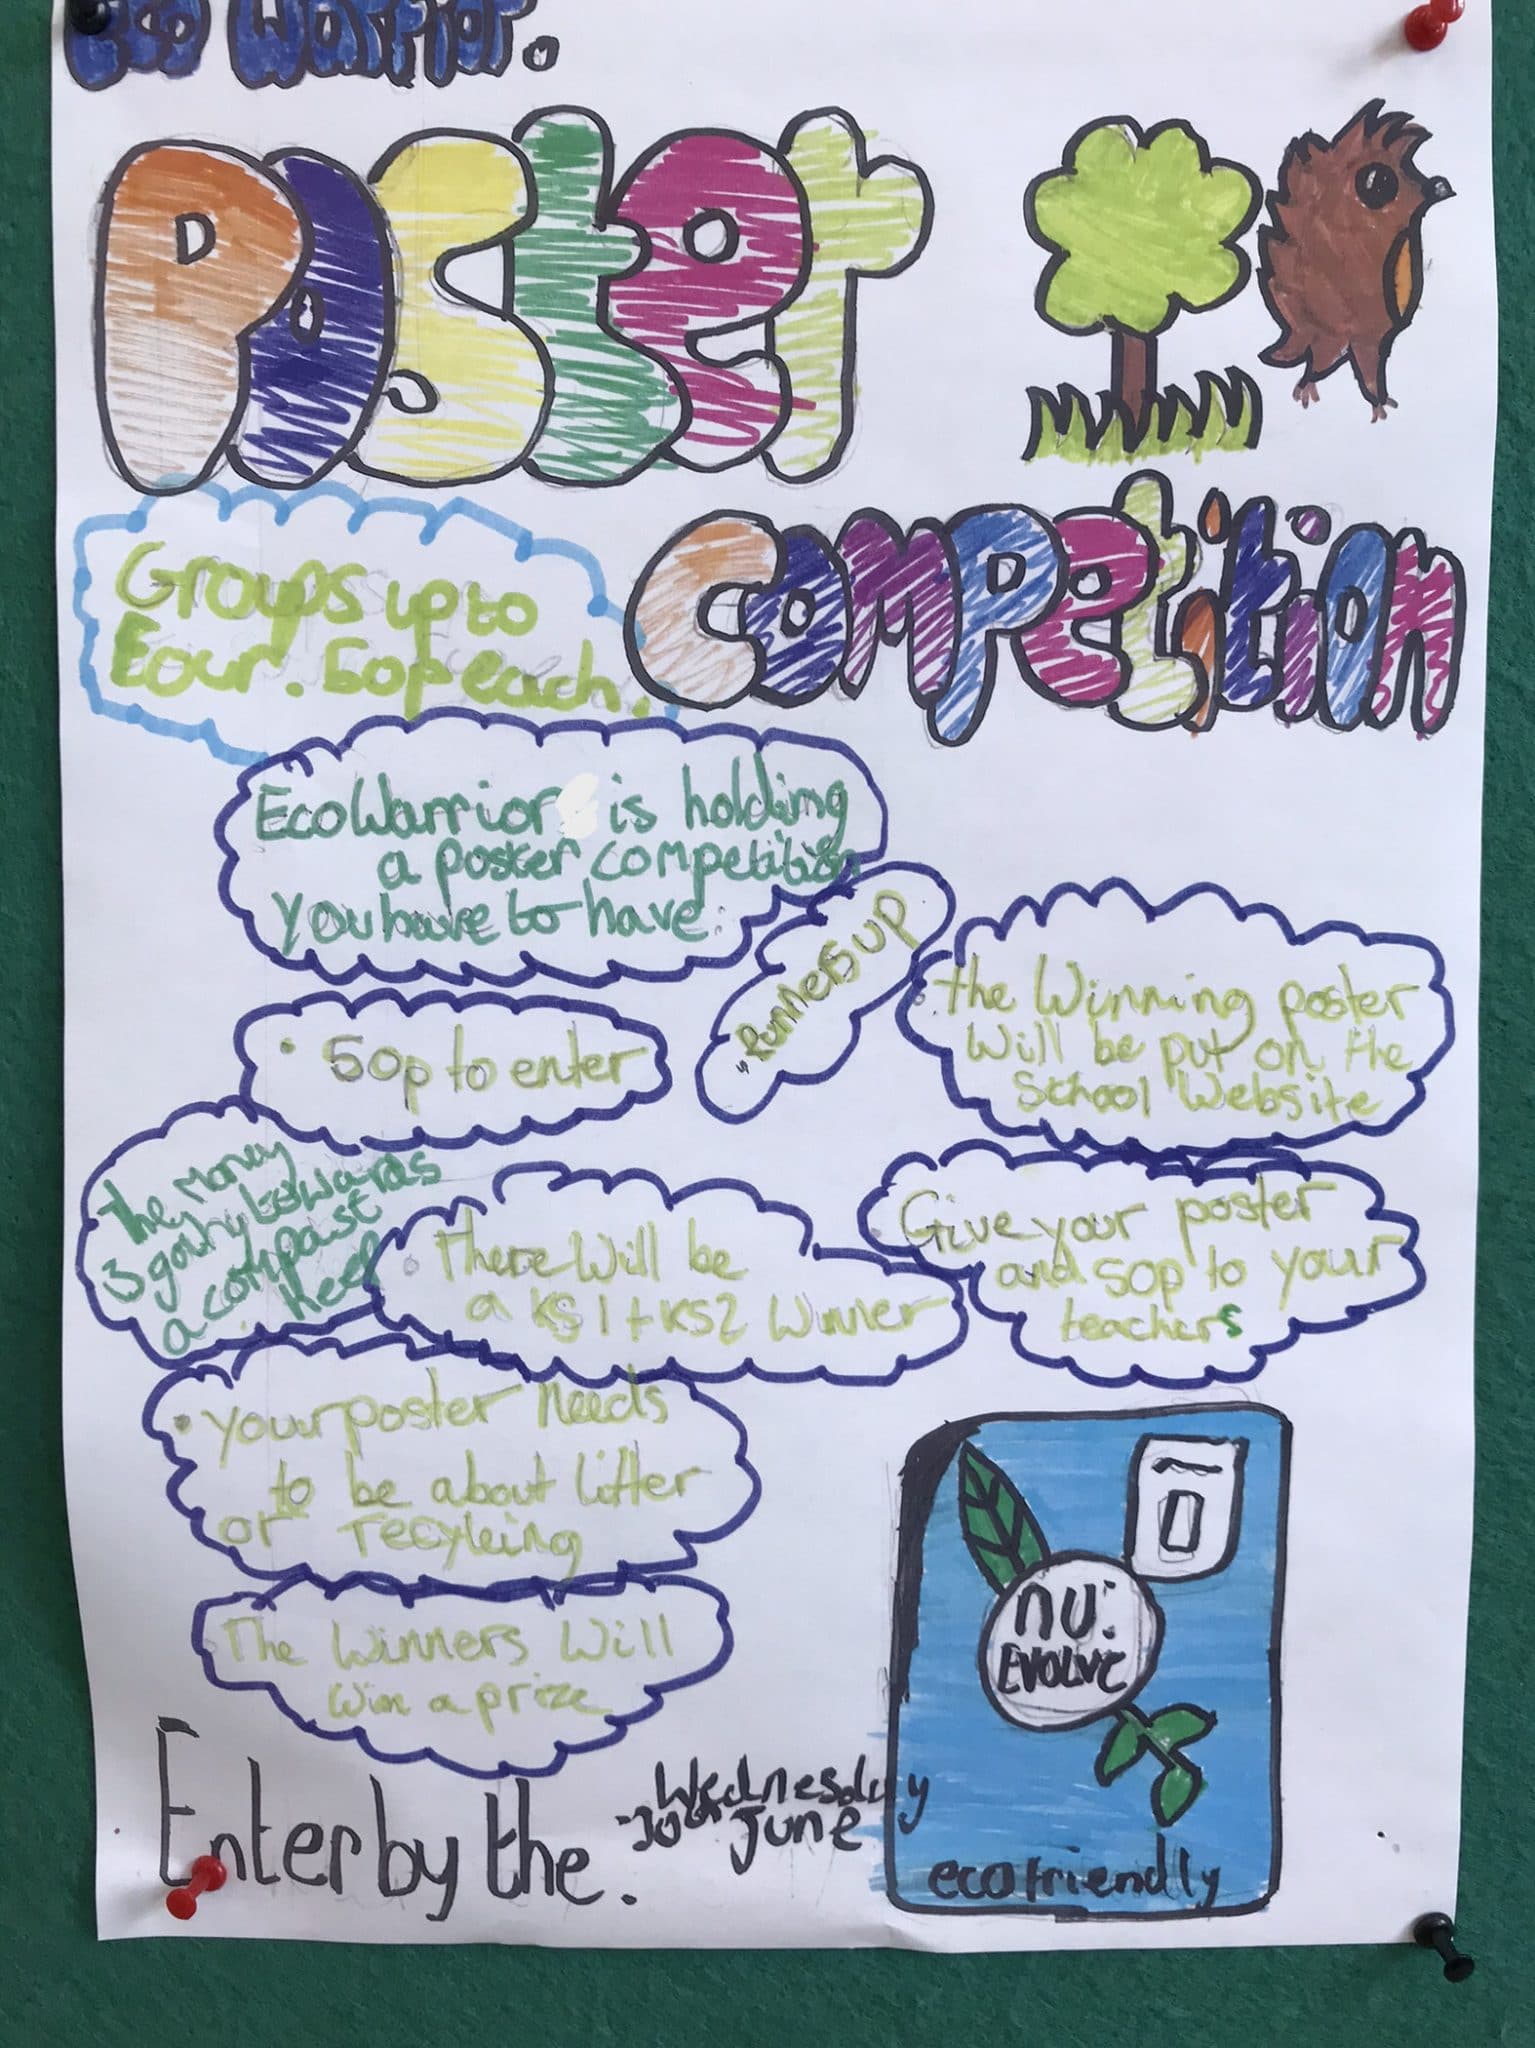 Eco Warrior.
Poster
Competition
Groups up to
Four. 50p each.
EcoWarrior is holding
a poster competition
You have to have:
• 50p to enter
"Runners up
• the Winning poster
Will be put on the
School Website
the money
is going towards
a compost
heep
• There Will be
a KS1+KS2 Winner
• Give your poster
and 50p to your
teachers
• your poster needs
to be about litter
or recykling
• The Winners Will
Win a prize
nu:
EVOLVE
eco friendly
Enter by the.
Wednesday
June